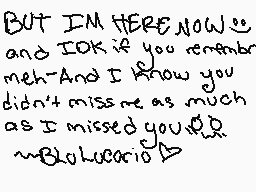 BUT IM HERE NOW
and IDK if you remembr
meh-And I know you
didn't miss me as much
as I missed you
~BLoLucario♡